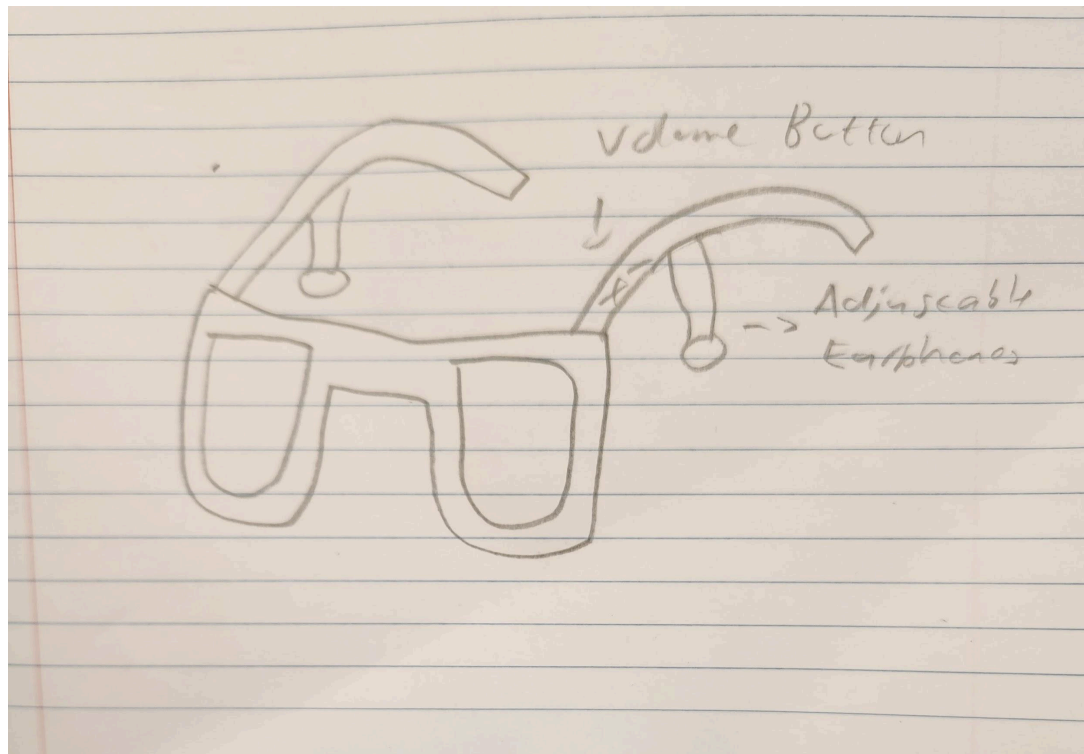 Volume Button
+ -
-> Adjuscable
Earphones